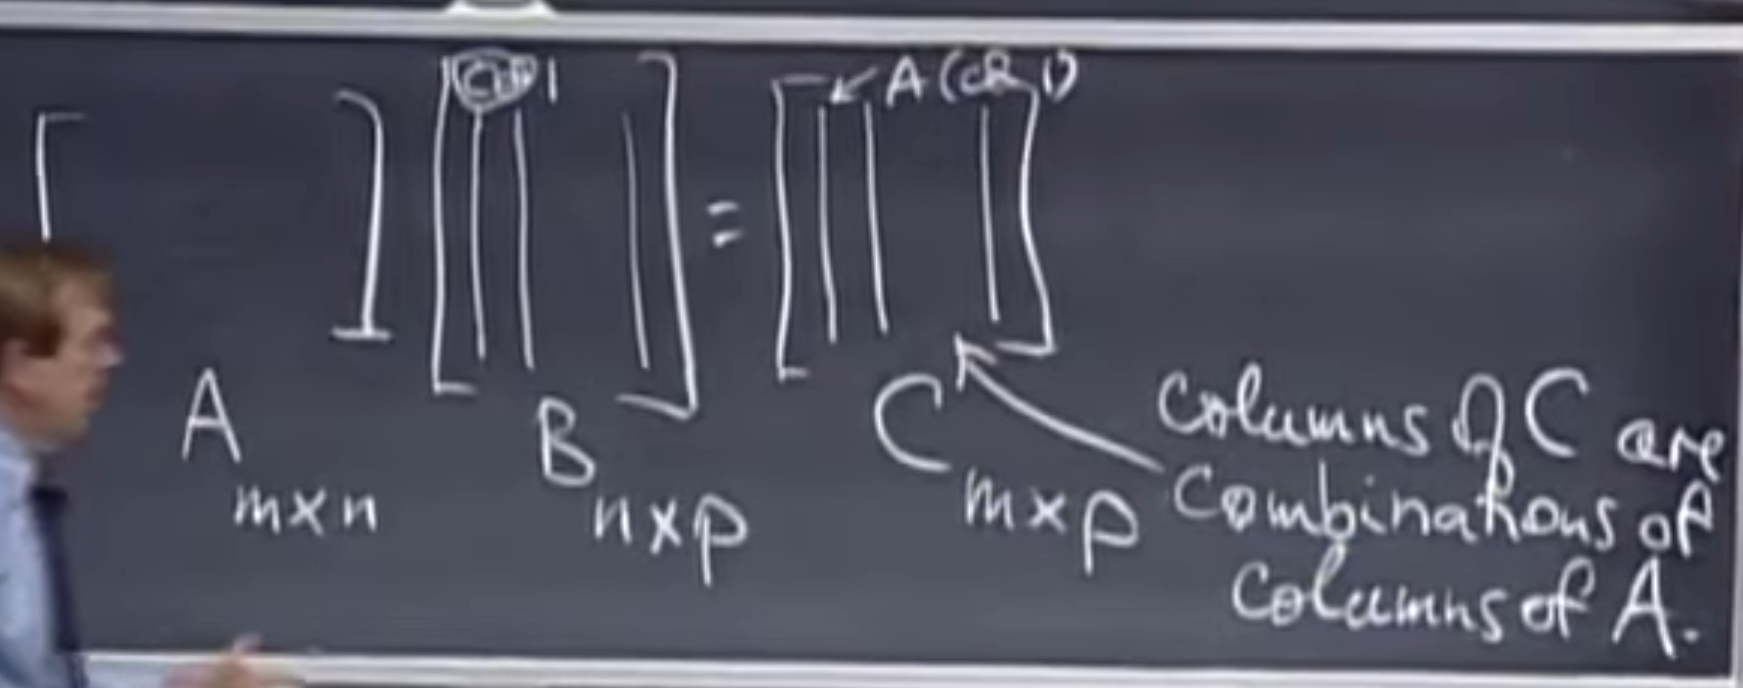 col 1
A (col 1)
=
A
m×n
B
n×p
C
m×p
Columns of C are
combinations of
columns of A.